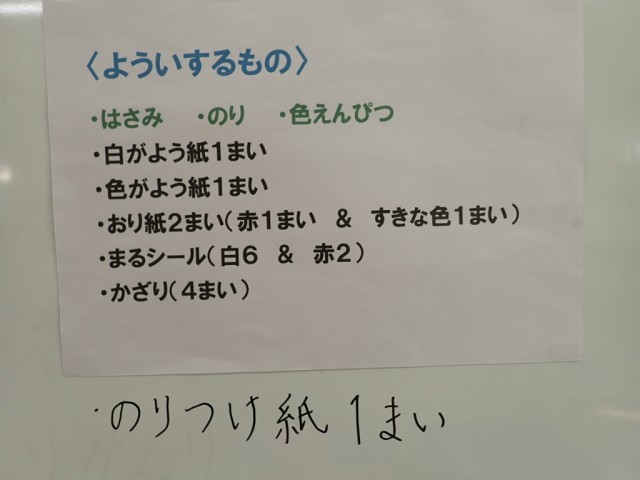 〈よういするもの〉
・はさみ　・のり　・色えんぴつ
・白がよう紙1まい
・色がよう紙1まい
・おり紙2まい(赤1まい　&　すきな色1まい)
・まるシール(白6　&　赤2)
・かざり(4まい)
・のりつけ紙1まい